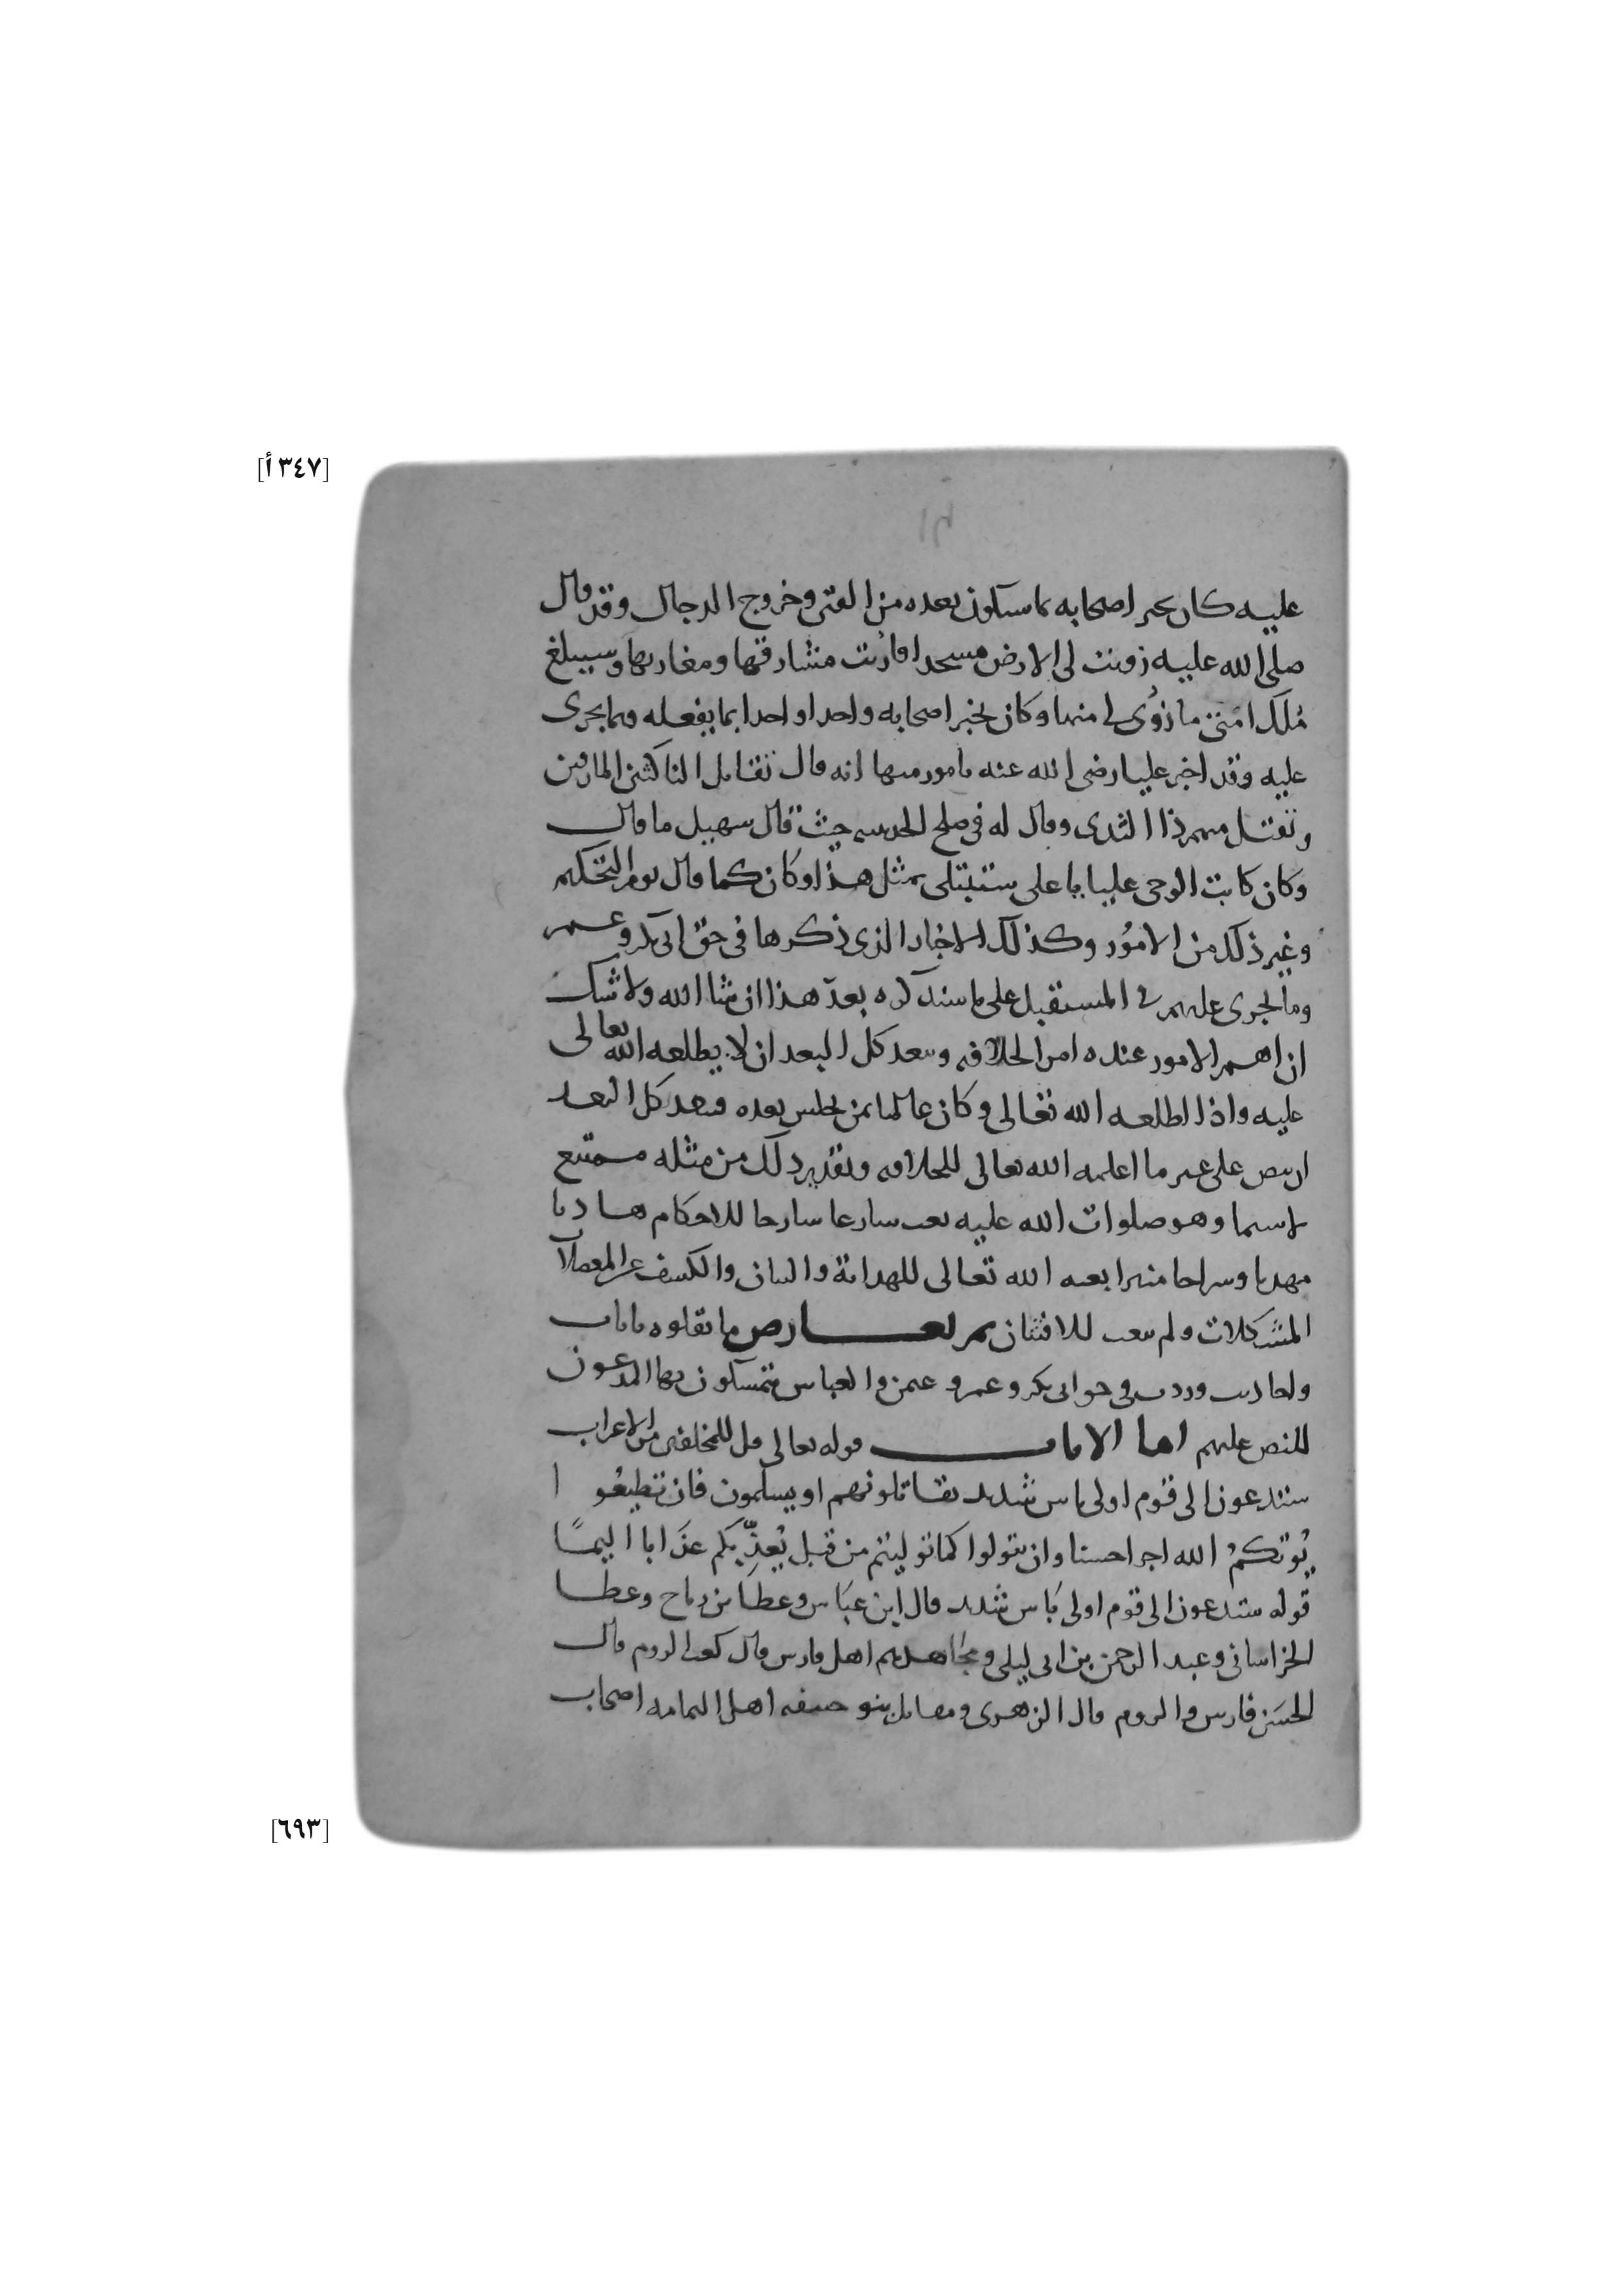 [٣٤٧ أ]
عليه كان يخبر اصحابه بما سيكون بعده من الفتن وخروج الدجال وقد قال
صلى الله عليه زويت لى الارض مسجدا فاريت مشارقها ومغاربها وسيبلغ
مُلك امتى ما زُوى لى منها وكان يخبر اصحابه واحدا واحدا بما يفعله وبما يجرى
عليه وقد اخبر عليا رضى الله عنه بامور منها انه قال تقاتل الناكثين المارقين
وتقتل منهم ذا الثدى وقال له فى صلح الحديبيه حيث قال سهيل ما قال
وكان كاتب الوحى عليا يا على ستبتلى بمثل هذا وكان كما قال يوم التحكيم
وغير ذلك من الامُور وكذلك الاخبار الذى ذكرها فى حق ابى بكر وعمر
وما يجرى عليهم فى المستقبل على ما سنذكره بعد هذا ان شا الله ولا شك
ان اهم الامور عنده امر الخلافه وبعد كل البعد ان لا يطلعه الله تعالى
عليه واذا اطلعه الله تعالى وكان عالما بمن يجلس بعده فبعد كل البعد
ان ينص على غير ما اعلمه الله تعالى للخلافه وتقدير ذلك من مثله ممتنع
لا سيما وهو صلوات الله عليه بعث شارعا شارحا للاحكام هاديا
مهديا وسراجا منيرا بعثه الله تعالى للهداية والبيان والكشف عن المعضلات
المشكلات ولم يبعث للافتتان ثم تعارض ما نقلوه بايات
واحاديث وردت فى حق ابى بكر وعمر وعثمن والعباس يتمسكون بها المدعون
للنص عليهم اما الايات قوله تعالى قل للمخلفين من الاعراب
ستدعون الى قوم اولى باس شديد تقاتلونهم او يسلمون فان تطيعُوا
يُوتكمُ الله اجرا حسنا وان تتولوا كما توليتم من قبل يُعذِّبكم عذَابا اليمًا
قوله ستدعون الى قوم اولى بَاس شديد قال ابن عبَاس وعطَا بن رباح وعطا
الخراسانى وعبد الرحمن بن ابى ليلى ومجَاهد هم اهل فارس قال كعب الروم قال
الحسَن فارس والروم قال الزهرى ومقاتل بنو حنيفه اهل اليمامه اصحاب
[٦٩٣]